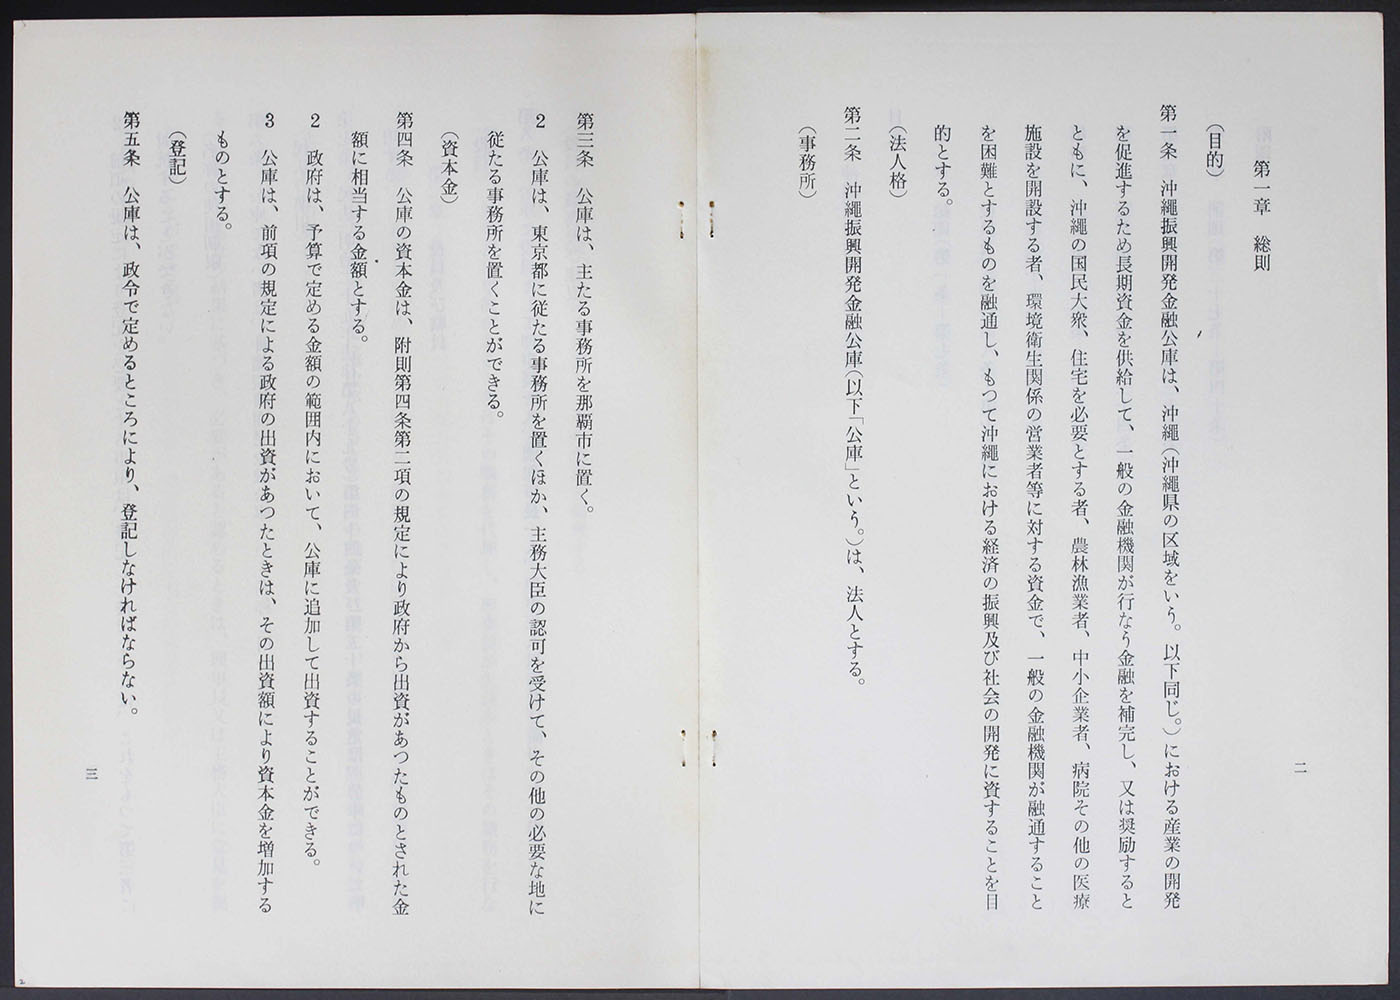 第一章　総則
（目的）
第一条　沖縄振興開発金融公庫は、沖縄（沖縄県の区域をいう。以下同じ。）における産業の開発
を促進するため長期資金を供給して、一般の金融機関が行なう金融を補完し、又は奨励すると
ともに、沖縄の国民大衆、住宅を必要とする者、農林漁業者、中小企業者、病院その他の医療
施設を開設する者、環境衛生関係の営業者等に対する資金で、一般の金融機関が融通すること
を困難とするものを融通し、もつて沖縄における経済の振興及び社会の開発に資することを目
的とする。
（法人格）
第二条　沖縄振興開発金融公庫（以下「公庫」という。）は、法人とする。
（事務所）
二
第三条　公庫は、主たる事務所を那覇市に置く。
2　公庫は、東京都に従たる事務所を置くほか、主務大臣の認可を受けて、その他の必要な地に
従たる事務所を置くことができる。
（資本金）
第四条　公庫の資本金は、附則第四条第二項の規定により政府から出資があつたものとされた金
額に相当する金額とする。
2　政府は、予算で定める金額の範囲内において、公庫に追加して出資することができる。
3　公庫は、前項の規定による政府の出資があつたときは、その出資額により資本金を増加する
ものとする。
（登記）
第五条　公庫は、政令で定めるところにより、登記しなければならない。
三